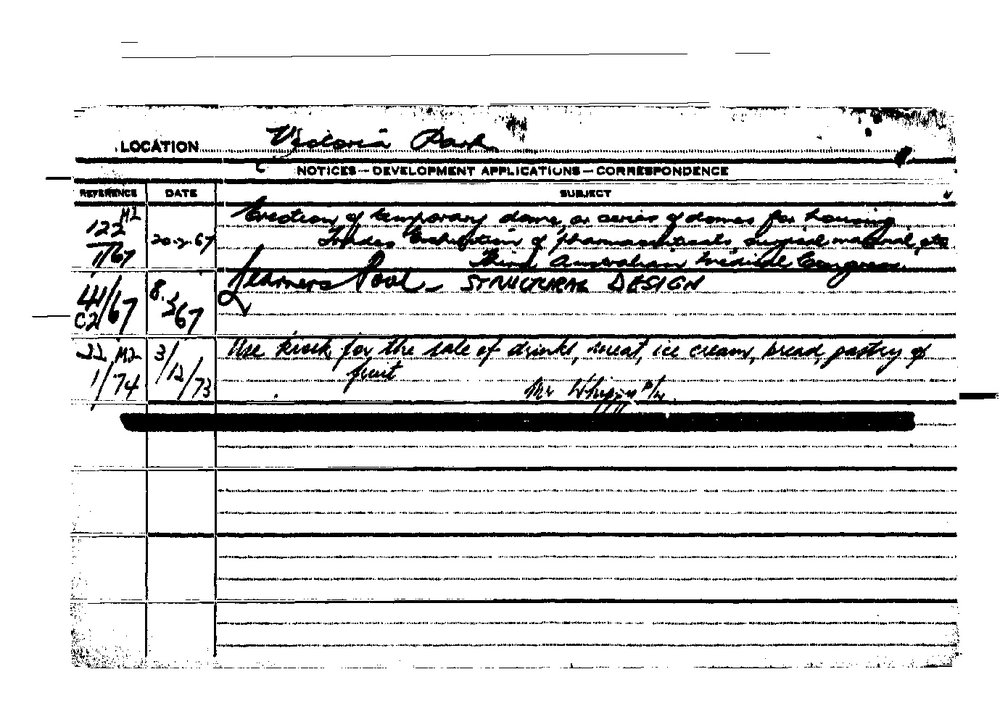 LOCATION Victoria Park
NOTICES — DEVELOPMENT APPLICATIONS — CORRESPONDENCE
REFERENCE DATE SUBJECT
122 M2 1/67 20-2-67 Erection of temporary dome, or series of domes for housing
Trades Exhibition of pharmaceuticals, surgical material, etc
Third Australian Medical Congress.
41/67 C2 8.2.67 Learners Pool — STRUCTURAL DESIGN
22 M2 1/74 3/12/73 Use kiosk for the sale of drinks, meat, ice cream, bread, pastry &
fruit
Mr Whippy P/L.